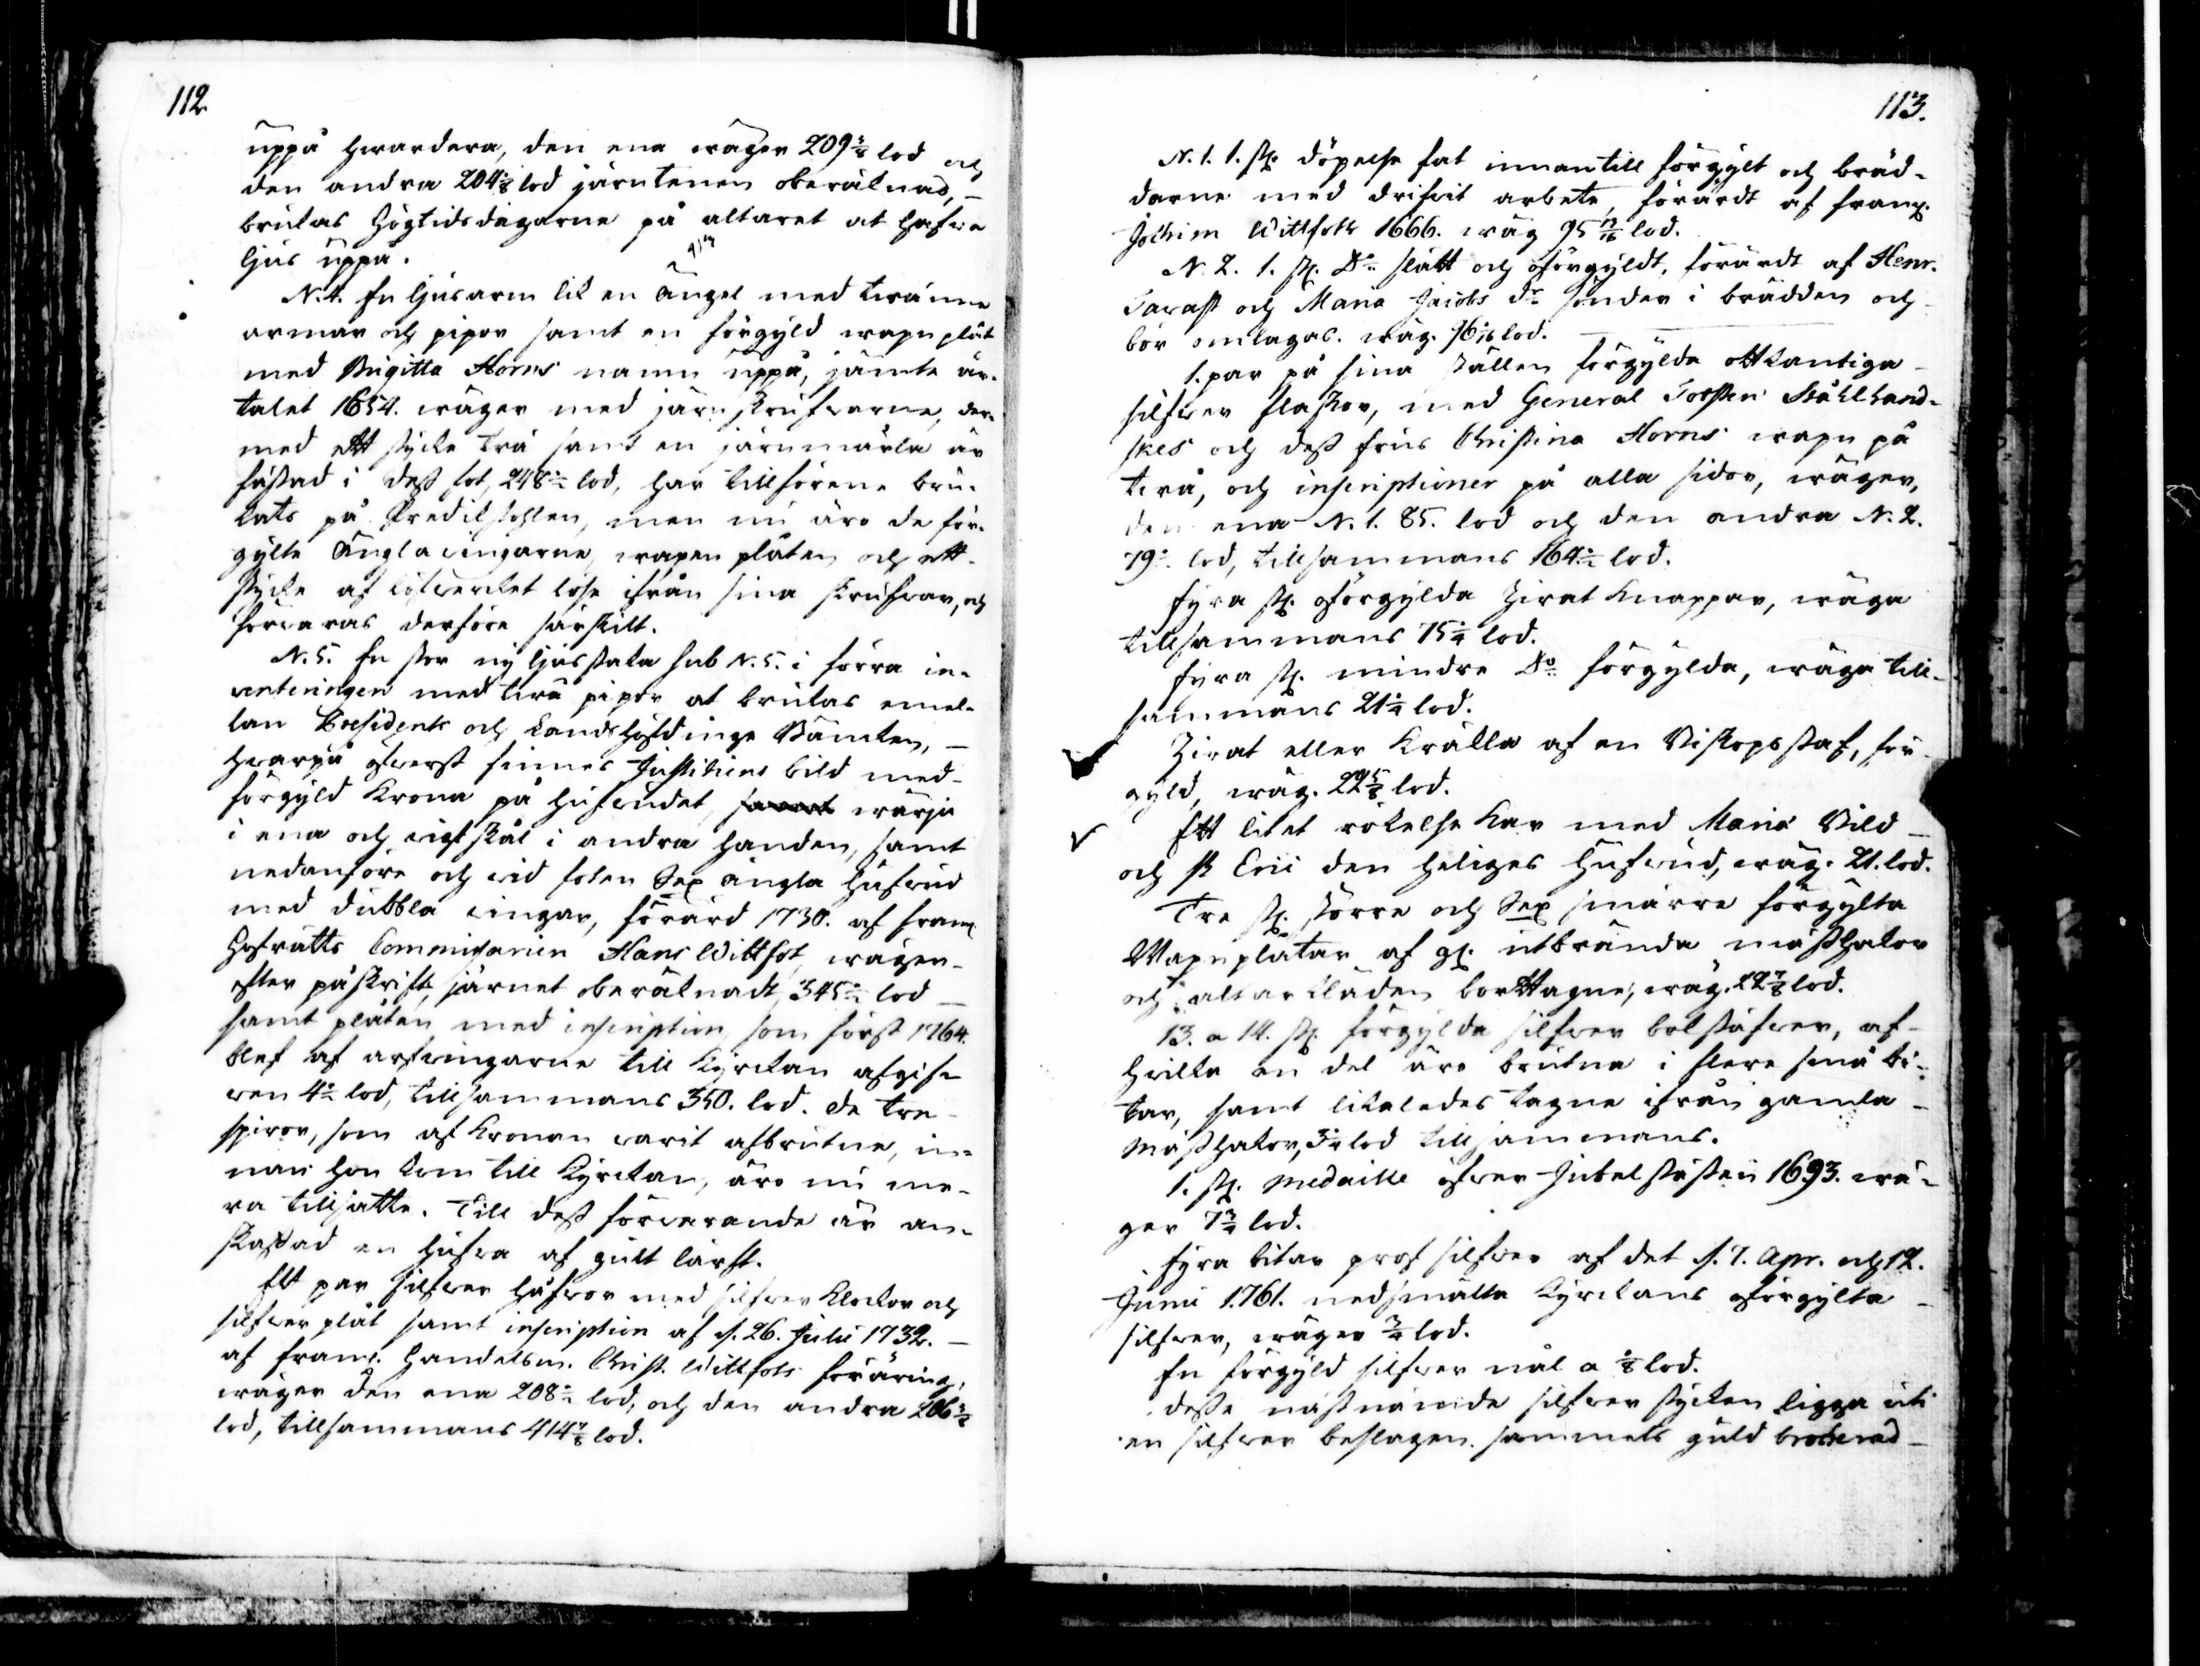 112
uppå hwardera, den ena wäger 209 3/8 lod och
den andra 204 1/8 lod järntenen oberäknad,
brukas Högtidsdagarne på altaret at hafwa
ljus uppå.
N. 4. En ljusarm lik en Ängel med twänne
armar och pipor samt en förgyld wapn plåt
med Brigitta Horns namn uppå, jämte år-
talet 1654. wäger med järn skrufwarne, der-
med ett stycke trä samt en järnmärla är
fästad i dess fot, 248 1/2 lod, har tillförene bru-
kats på Predikstohlen, men nu äro de för-
gylte Ängla wingarne, wapen plåten och ett
stycke af löfwerket löse ifrån sina skrufwar, och
förwaras derföre särskilt.
N. 5. En stor ny ljusstaka sub N. 5. i förra in-
venteringen med twå pipor at brukas emel-
lan Præsidents och Landshöfdinge Bäncken,
hwarpå öfwerst finnes Justitiens bild med
förgyld Krona på hufwudet, samt wärja
i ena och wigtskål i andra handen, samt
nedanföre och wid foten Sex ängla hufwud
med dubbla wingar, förärd 1730. af framl.
Hofrätts Commissarien Hans Wittfot, wäger
efter påskrift, järnet oberäknadt, 345 1/2 lod
samt plåten med inscription, som först 1764.
blef af arfwingarne till Kyrckan afgif-
wen 4 1/2 lod, tillsammans 350. lod. de tre
spiror, som af Kronan warit afbrutne, in-
nan hon kom till Kyrckan, äro nu me-
ra tillsatte. Till dess förwarande är an-
skaffad en hufwa af gult lärft.
Ett par silfwer håfwor med silfwer klockor och
silfwer plåt samt inscription af d. 26. Julii 1732.
af framl. Handelsm. Christ. Wittfots föräring,
wäger den ena 208 1/2 lod, och den andra 206 3/8
lod, tillsammans 414 7/8 lod.
113.
N. 1. 1. st. döpelse fat innantill förgylt och bräd-
darne med drifwit arbete, förärdt af framl.
Jochim Wittfoth 1666. wäg 95 13/16 lod.
N. 2. 1. st. Do slätt och oförgyldt, förärdt af Henr.
Tawast och Maria Jacobs dr sönder i brädden och
bör omlagas. wäg. 76 1/16 lod.
1. par på sina ställen förgylda ottkantiga
silfwer flaskor, med General Torsten Stålhand-
skes och dess frus Christina Horns wapn på
twå, och inscriptioner på alla sidor, wäger,
den ena N. 1. 85. lod och den andra N. 2.
79 1/2 lod, tillsammans 164 1/2 lod.
Fyra st. oförgylda Zirat knappar, wäga
tillsammans 75 1/4 lod.
Fyra st. mindre Do förgylda, wäga till-
sammans 21 1/4 lod.
Zirat eller Kräkla af en Biskopsstaf, för-
gyld, wäg. 22 5/8 lod.
Ett litet rökelse kar med Mariæ Bild
och St Erii den heliges hufwud, wäg. 21. lod.
Tre st. större och Sex smärre förgylta
Wapnplåtar af gl. utbrända mässhakor
och altarkläden borttagne, wäg. 22 7/8 lod.
13. a 14. st. förgylda silfwer bokstäfwer, af
hwilka en del äro brutna i flere små bi-
tar, samt likaledes tagne ifrån gamla
Mässhakor, 3 1/4 lod tillsammans.
1. st. Medaille öfwer Jubelfästen 1693. wä-
ger 7 3/4 lod.
Fyra bitar prof silfwer af det d. 7. Apr. och 12.
Junii 1761. nedsmälta Kyrckans oförgylta
silfwer, wäger 3/4 lod.
En förgyld silfwer nål a 1/8 lod.
desse nästnämde silfwer stycken ligga uti
en silfwer beslagen sammets guld broderad